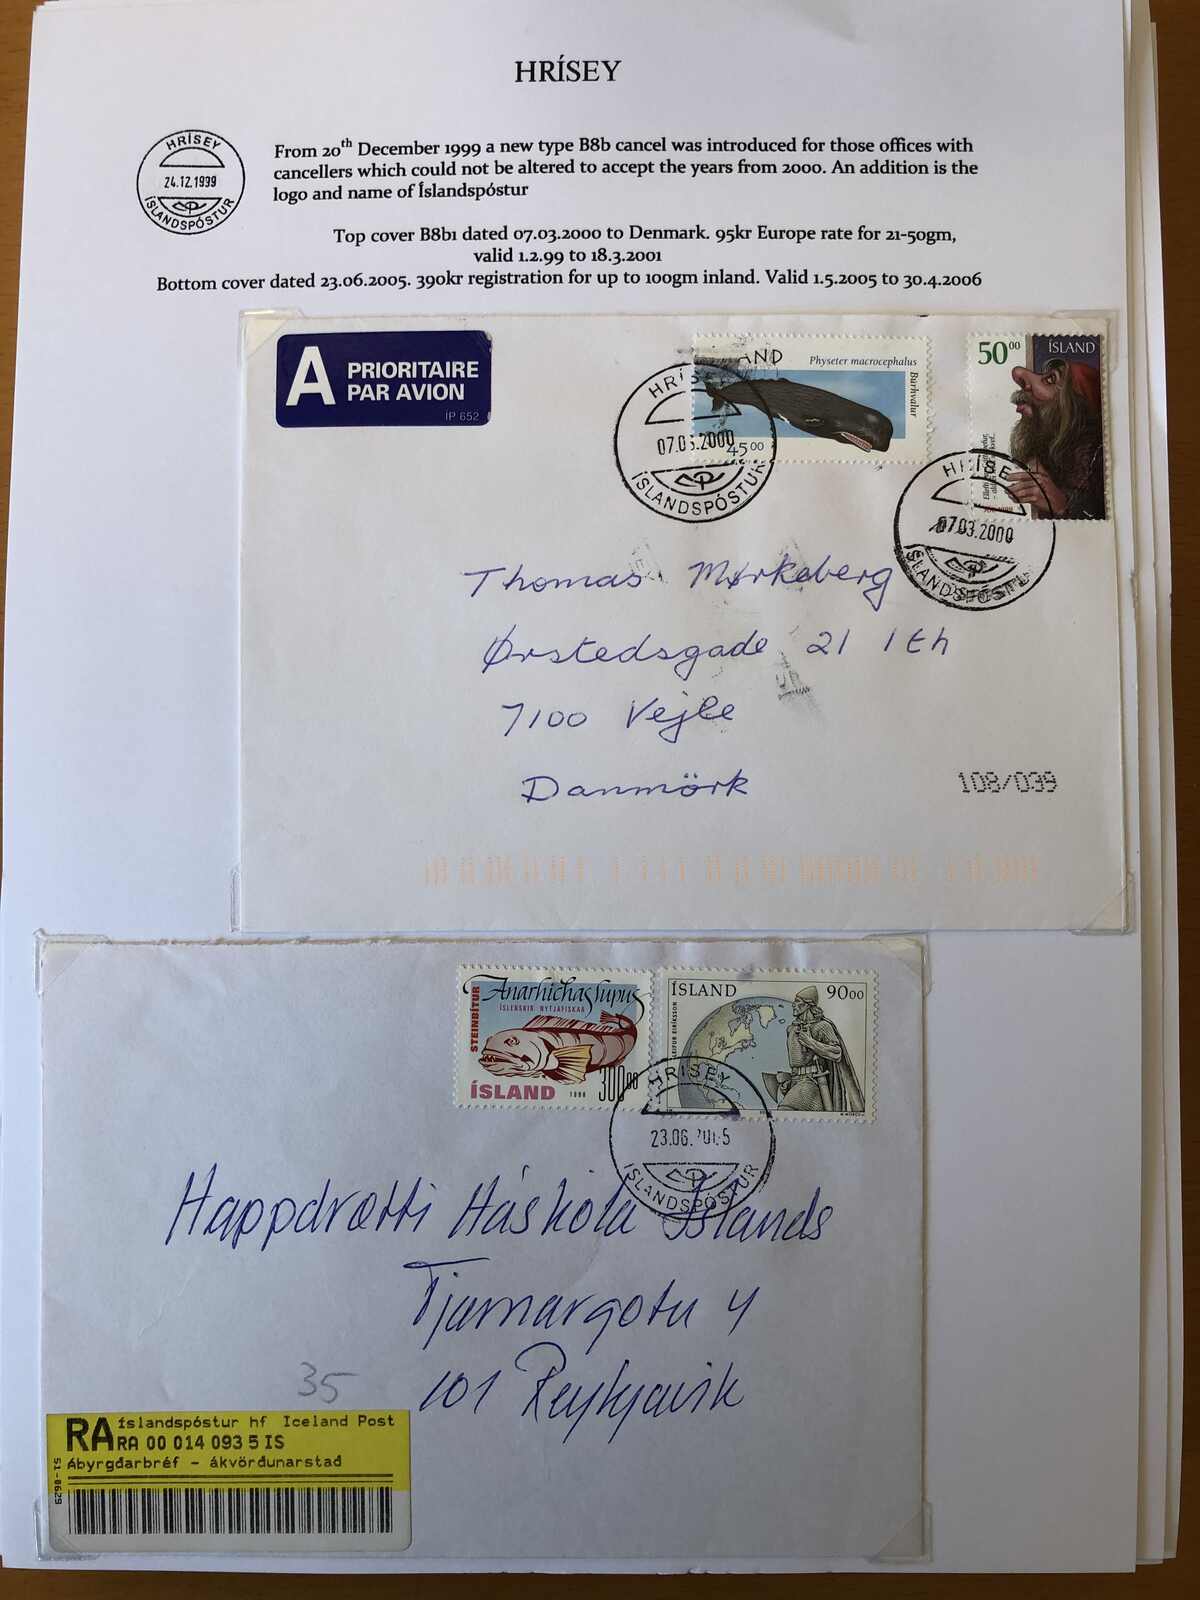 HRÍSEY
HRÍSEY
24.12.1999
ÍSLANDSPÓSTUR
From 20th December 1999 a new type B8b cancel was introduced for those offices with
cancellers which could not be altered to accept the years from 2000. An addition is the
logo and name of Íslandspóstur
Top cover B8b1 dated 07.03.2000 to Denmark. 95kr Europe rate for 21-50gm,
valid 1.2.99 to 18.3.2001
Bottom cover dated 23.06.2005. 390kr registration for up to 100gm inland. Valid 1.5.2005 to 30.4.2006
A PRIORITAIRE
PAR AVION
ÍP 652
Physeter macrocephalus
Búrhvalur
45 00
HRÍSEY
07.03.2000
ÍSLANDSPÓSTUR
50 00 ÍSLAND
HRÍSE
07.03.2000
ÍSLANDSPÓSTUR
Thomas Mørkeberg
Ørstedsgade 21 1th
7100 Vejle
Danmörk
108/039
Anarhichas lupus
ÍSLENSKIR NYTJAFISKAR
STEINBÍTUR
ÍSLAND 1998 300 00
ÍSLAND 90 00
LEIFUR EIRÍKSSON
HRÍSEY
23.06.2005
ÍSLANDSPÓSTUR
Happdrætti Háskóla Íslands
Tjarnargötu 4
101 Reykjavik
35
RA Íslandspóstur hf Iceland Post
RA 00 014 093 5 IS
Ábyrgðarbréf - ákvörðunarstað
S1-0629